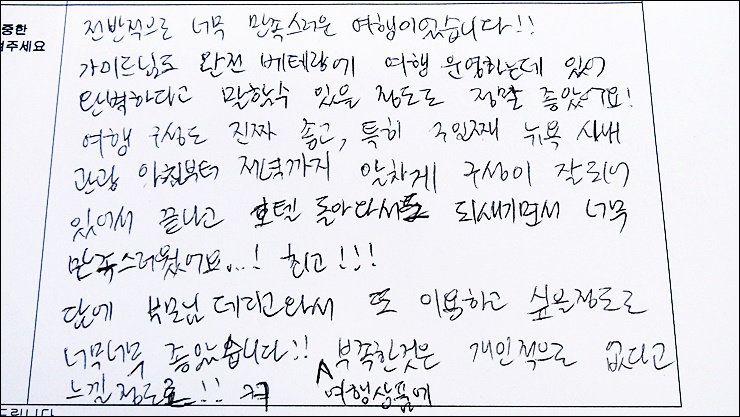 중한
겨주세요
전반적으로 너무 만족스러운 여행이었습니다!!
가이드님도 완전 베테랑에 여행 운영하는데 있어
완벽하다고 말할수 있을 정도로 정말 좋았어요!
여행 구성도 진짜 좋고, 특히 2일째 뉴욕 시내
관광 아침부터 저녁까지 알차게 구성이 잘되어
있어서 끝나고 호텔 돌아와서도 되새기면서 너무
만족스러웠어요...! 최고!!!
담에 부모님 데리고와서 또 이용하고 싶을정도로
너무너무 좋았습니다!! 부족한것은 개인적으로 없다고
느낄정도로!! ㅋㅋ 여행상품에
드립니다